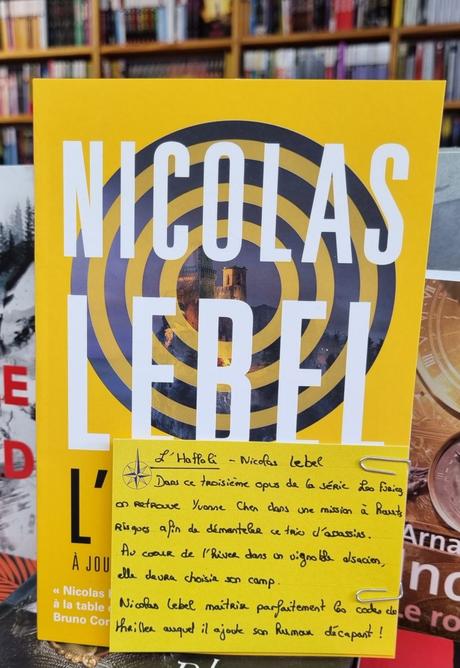 NICOLAS
LEBEL
L'
À JOU
« Nicolas
à la table
Bruno Cor
E
D
Arna
no
e ro
L'Hallali - Nicolas Lebel
Dans ce troisième opus de la série Les Furies
on retrouve Yvonne Chen dans une mission à Hauts
Risques afin de démanteler ce trio d'assassins.
Au coeur de l'Hiver dans un vignoble alsacien,
elle devra choisir son camp.
Nicolas Lebel maitrise parfaitement les codes de
thriller auquel il ajoute son humour décapant !